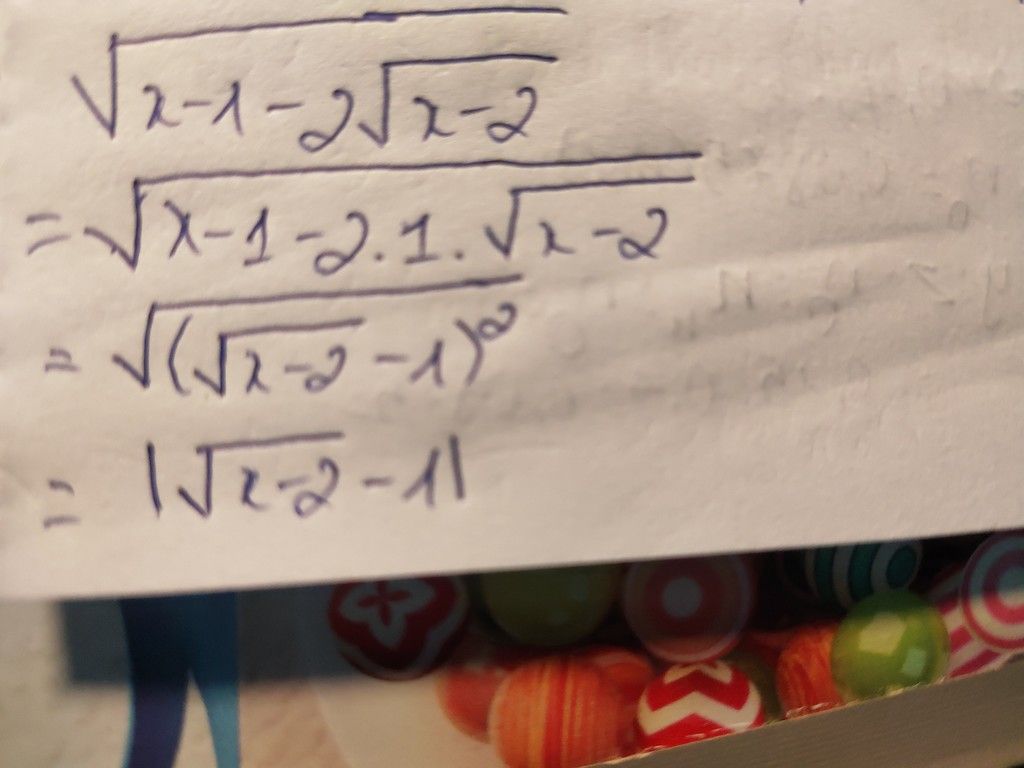 √(x-1-2√(x-2))
= √(x-1-2.1.√(x-2))
= √((√(x-2)-1)²)
= |√(x-2)-1|